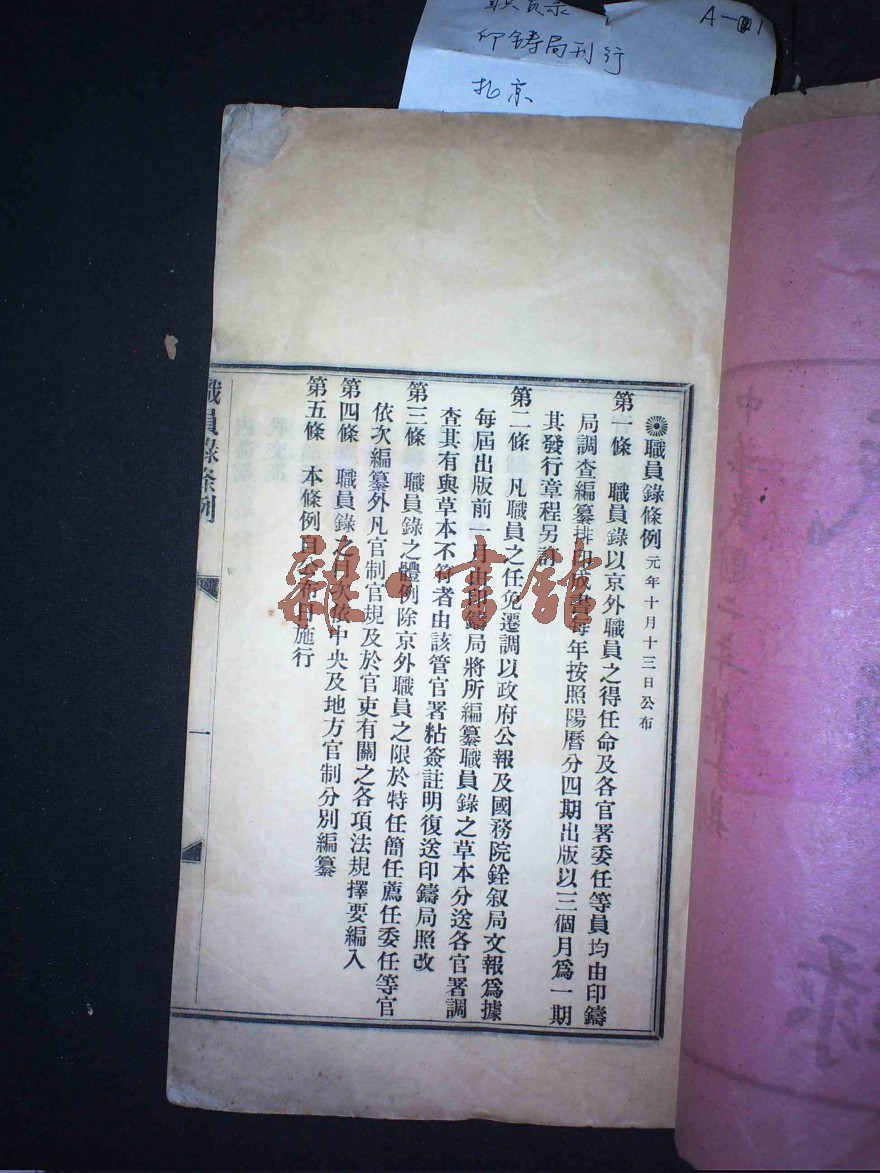 职员录
印铸局刊行
北京
A—
職員錄條例 元年十月十三日公布
第一條 職員錄以京外職員之得任命及各官署委任等員均由印鑄
局調查編纂排印成書每年按照陽曆分四期出版以三個月爲一期
其發行章程另訂
第二條 凡職員之任免遷調以政府公報及國務院銓叙局文報爲據
每屆出版前一月由印鑄局將所編纂職員錄之草本分送各官署調
查其有與草本不符者由該管官署粘簽註明復送印鑄局照改
第三條 職員錄之體例除京外職員之限於特任簡任薦任委任等官
依次編纂外凡官制官規及於官吏有關之各項法規擇要編入
第四條 職員錄之目次依中央及地方官制分別編纂
第五條 本條例自公布日施行
職員錄條例
一
雜·書館